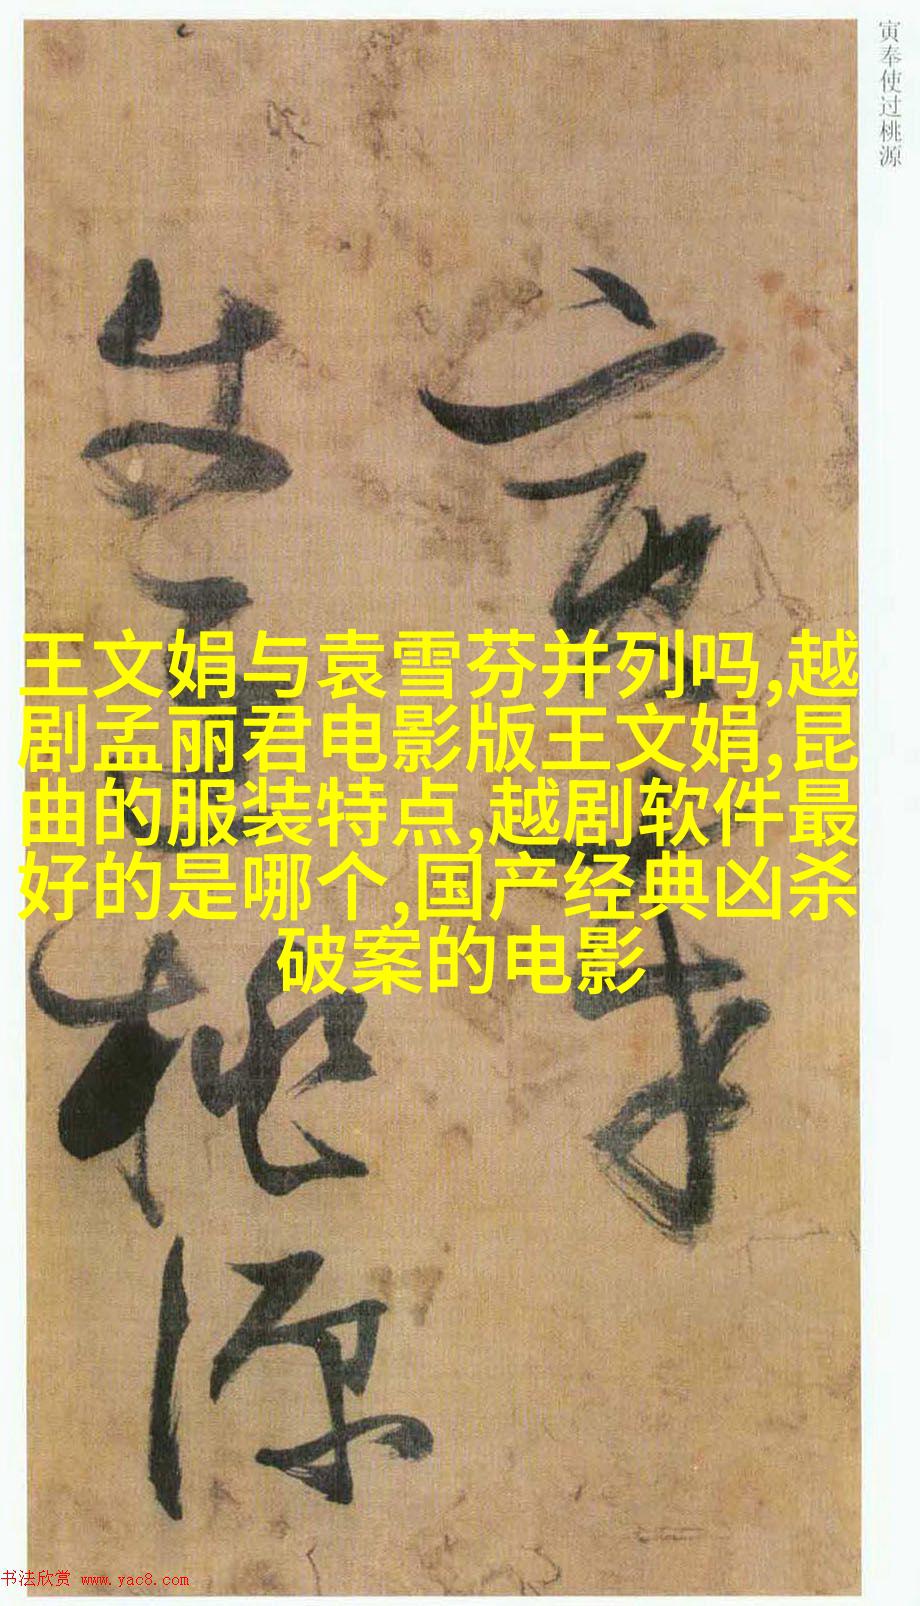 寅奉使过桃源
寅奉
使过桃源
王文娟与袁雪芬并列吗,越
剧孟丽君电影版王文娟,昆
曲的服装特点,越剧软件最
好的是哪个,国产经典凶杀
破案的电影
书法欣赏 www.yac8.com